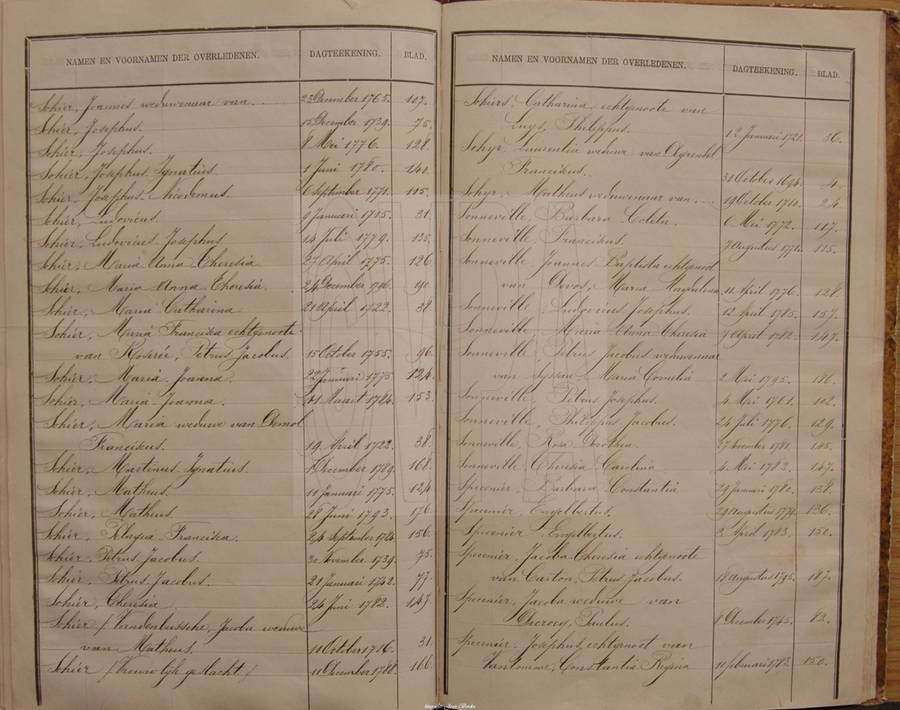 NAMEN EN VOORNAMEN DER OVERLEDENEN. DAGTEEKENING. BLAD.
Schier, Joannes weduwenaar van 23 December 1765. 107.
Schier, Josephus. 15 December 1739. 75.
Schier, Josephus. 8 Mei 1776. 128.
Schier, Josephus Ignatius 1 Juni 1780. 140.
Schier, Josephus Nicodemus 6 September 1771. 115.
Schier, Ludovicus. 9 Januari 1715. 31.
Schier, Ludovicus Josephus 14 Juli 1779. 135.
Schier, Maria Anna Theresia 27 April 1775. 126.
Schier, Maria Anna Theresia 24 December 1746. 90.
Schier, Maria Catharina 21 April 1722. 38.
Schier, Maria Francisca echtgenoote
van Petrus Jacobus. 15 October 1755. 96.
Schier, Maria Joanna. Januari 1775 124.
Schier, Maria Joanna. Maart 1784. 153.
Schier, Maria weduwe van Demol
Franciscus. 19 April 1722. 38.
Schier, Martinus Ignatius. December 1789. 168.
Schier, Matheus. 11 Januari 1775. 124.
Schier, Matheus. 28 Juni 1793. 176.
Schier, Pelagia Francisca. 24 September 1784 156.
Schier, Petrus Jacobus. 30 November 1739. 75.
Schier, Petrus Jacobus. 21 Januari 1742. 77.
Schier, Theresia 24 Juni 1782. 147
Schier / Vandenbussche, Jacoba weduwe
van Matheus. 10 October 1716. 31.
Schier (Vrouwelijk geslacht) 11 December 1788. 166.
NAMEN EN VOORNAMEN DER OVERLEDENEN. DAGTEEKENING. BLAD.
Schiers, Catharina echtgenoote van
Luys, Philippus. 12 Januari 1721. 36.
Schyr, Laurentia weduwe van
Franciscus. 31 October 1694. 4.
Schyr, Matheus weduwenaar van 19 October 1710. 24
Sonneville, Barbara Coleta. 6 Mei 1772. 117.
Sonneville, Franciscus. 7 Augustus 1771. 115.
Sonneville, Joannes Baptista echtgenoot
van Devos, Maria Magdalena 11 April 1776. 128
Sonneville, Ludovicus Josephus. 12 April 1785. 157.
Sonneville, Maria Anna Theresia 7 April 1782. 147.
Sonneville, Petrus Jacobus weduwenaar
van Maria Cornelia 2 Mei 1795. 186.
Sonneville, Petrus Josephus. 4 Mei 1761. 102.
Sonneville, Philippus Jacobus. 24 Juli 1776. 129.
Sonneville, Rosa Dorothea. 27 November 1781. 145.
Sonneville, Theresia Carolina 4 Mei 1782. 147.
Specenier, Barbara Constantia 29 Januari 1780. 138.
Specenier, Engelbertus. Augustus 1779. 136.
Specenier, Engelbertus. 3 April 1783. 150.
Specenier, Jacoba Theresia echtgenoote
van Carton, Petrus Jacobus. 18 Augustus 1795. 187.
Specenier, Jacoba weduwe van
Paulus. 8 December 1745. 82.
Specenier, Josephus echtgenoot van
Vantomme, Constantia Regina 10 Februari 1783. 150.